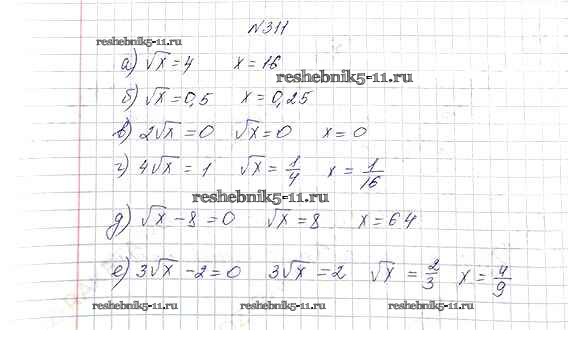 №311
reshebnik5-11.ru
а) √x = 4 x = 16
reshebnik5-11.ru
б) √x = 0,5 x = 0,25
в) 2√x = 0 √x = 0 x = 0
г) 4√x = 1 √x = 1/4 x = 1/16
reshebnik5-11.ru
д) √x - 8 = 0 √x = 8 x = 64
е) 3√x - 2 = 0 3√x = 2 √x = 2/3 x = 4/9
reshebnik5-11.ru reshebnik5-11.ru reshebnik5-11.ru